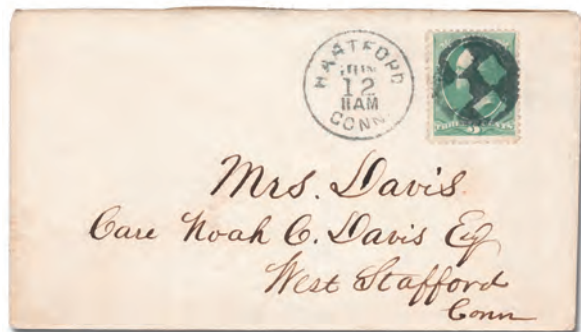 HARTFORD
JUN
12
11AM
CONN.
THREE CENTS
3
Mrs. Davis.
Care Noah C. Davis Esq
West Stafford
Conn